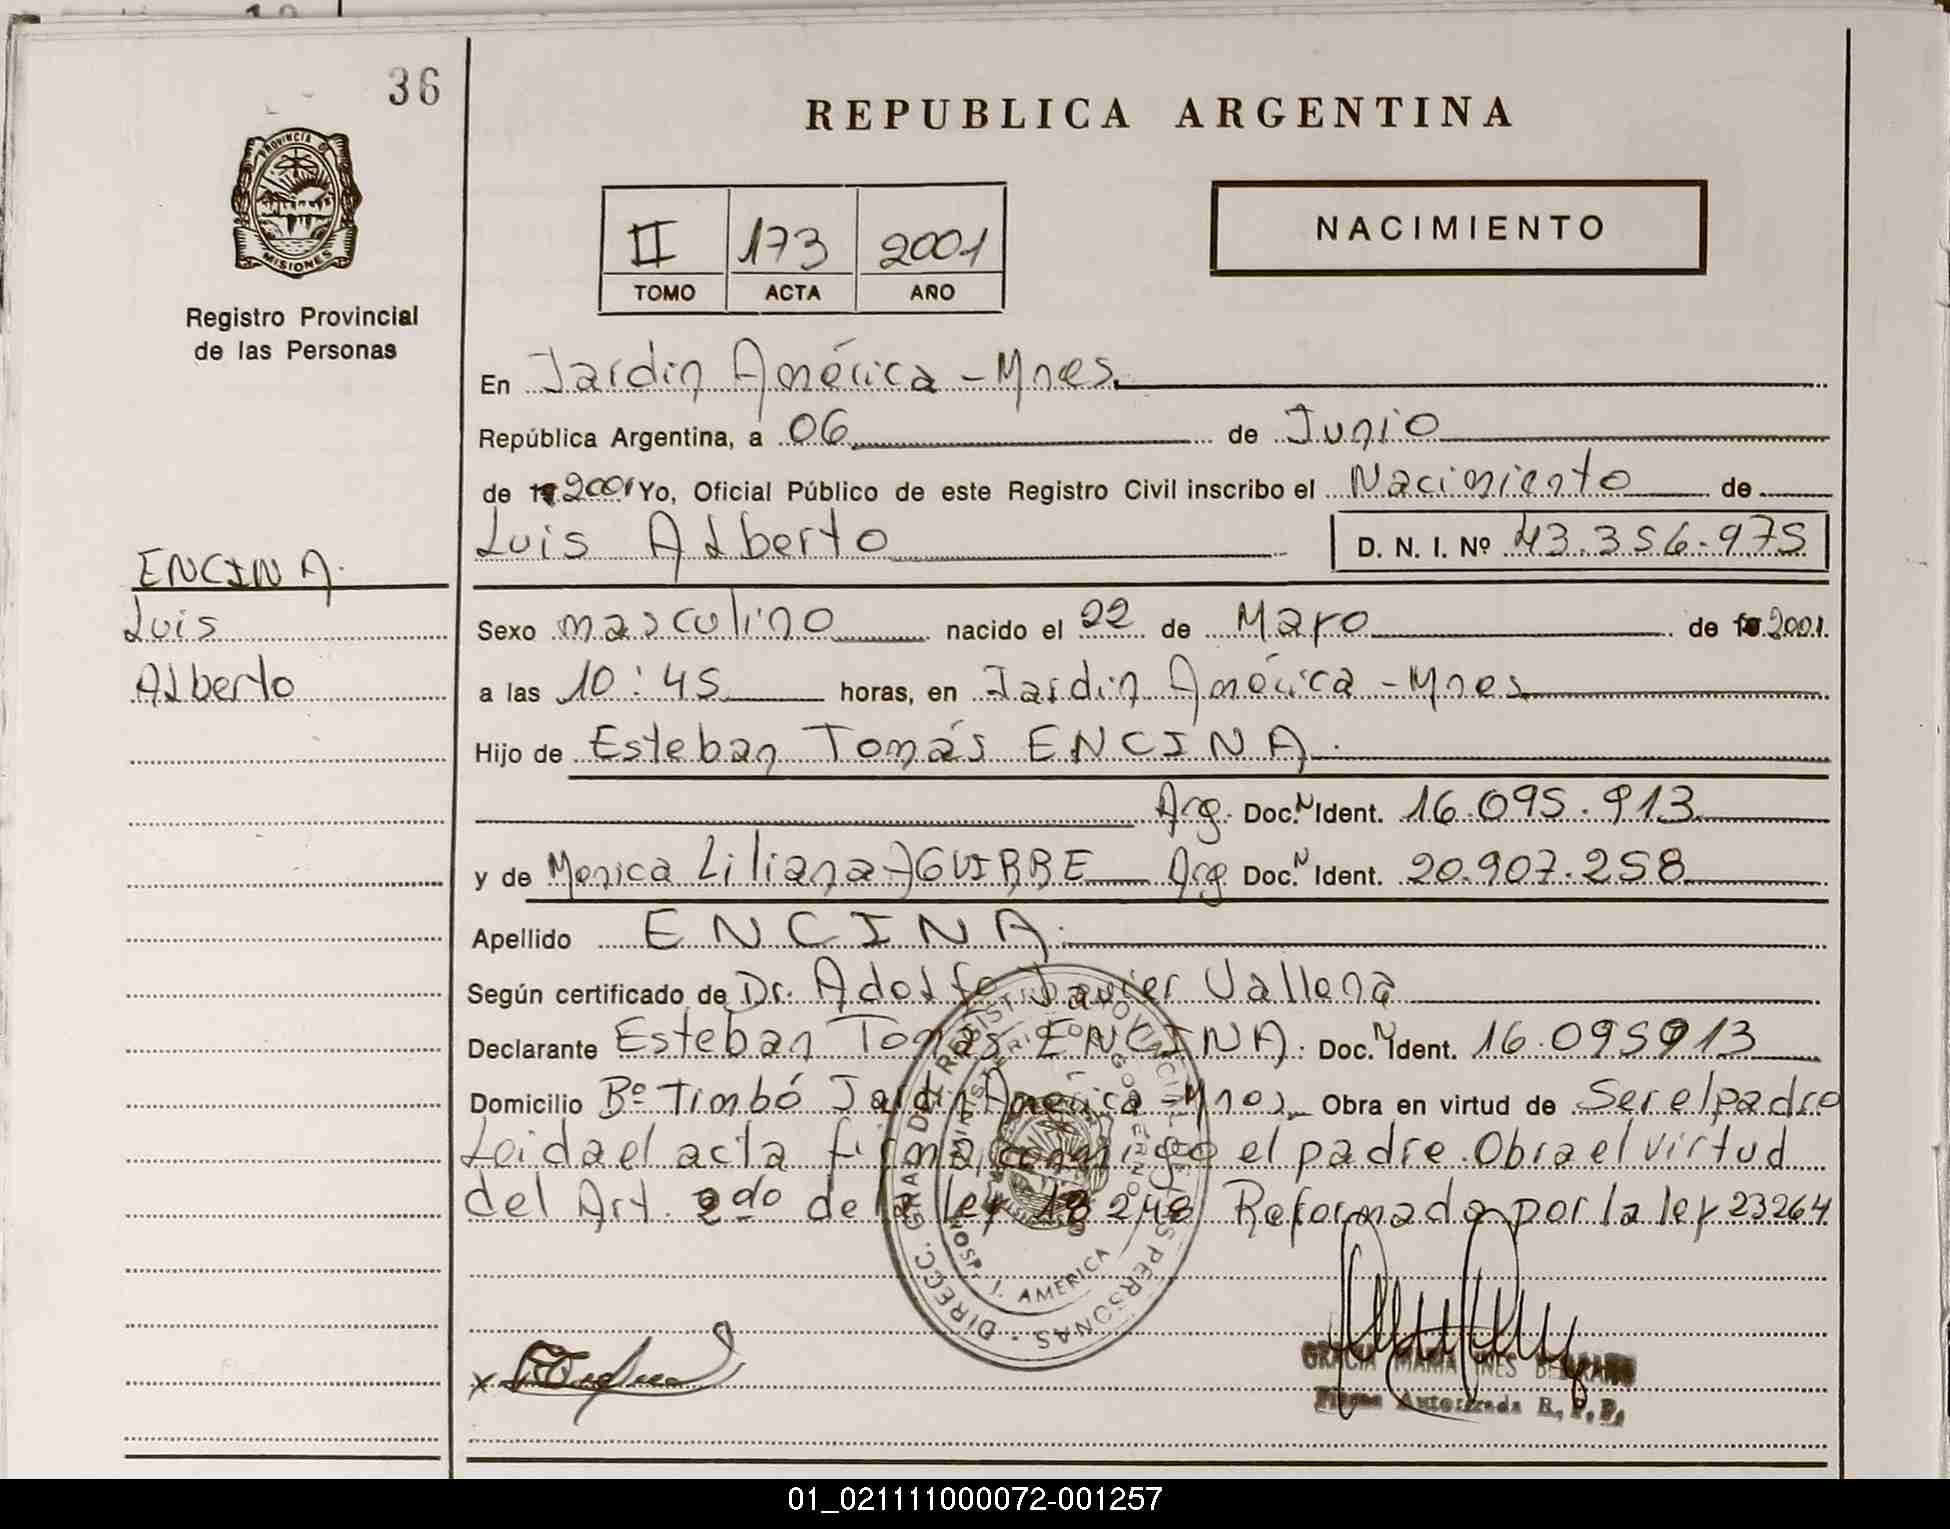 36
PROVINCIA DE
MISIONES
Registro Provincial
de las Personas
REPUBLICA ARGENTINA
II 173 2001
TOMO ACTA AÑO
NACIMIENTO
En Jardin América - Mnes.
República Argentina, a 06 de Junio
de 19 2001 Yo, Oficial Público de este Registro Civil inscribo el Nacimiento de
Luis Alberto D. N. I. Nº 43.356.975
ENCINA.
Luis
Alberto
Sexo masculino nacido el 22 de Mayo de 19 2001.
a las 10:45 horas, en Jardin América - Mnes
Hijo de Esteban Tomás ENCINA.
Arg. Doc. N Ident. 16.095.913
y de Monica Liliana AGUIRRE Arg Doc. N Ident. 20.907.258
Apellido ENCINA.
Según certificado de Dr. Adolfo Javier Vallena
Declarante Esteban Tomás ENCINA. Doc. N Ident. 16.095913
Domicilio Bº Timbó Jardin América - Mnes, Obra en virtud de Ser el padre
Leida el acta firma conmigo el padre. Obra el virtud
del Art. 2do de la ley 18248 Reformada por la ley 23264
DIRECC. GRAL. DEL REGISTRO PROVINCIAL DE LAS PERSONAS
MINISTERIO DE GOBIERNO
HOSP. J. AMERICA
x
GRACIA MARIA INES
Firma Autorizada R.P.P.
01_021111000072-001257